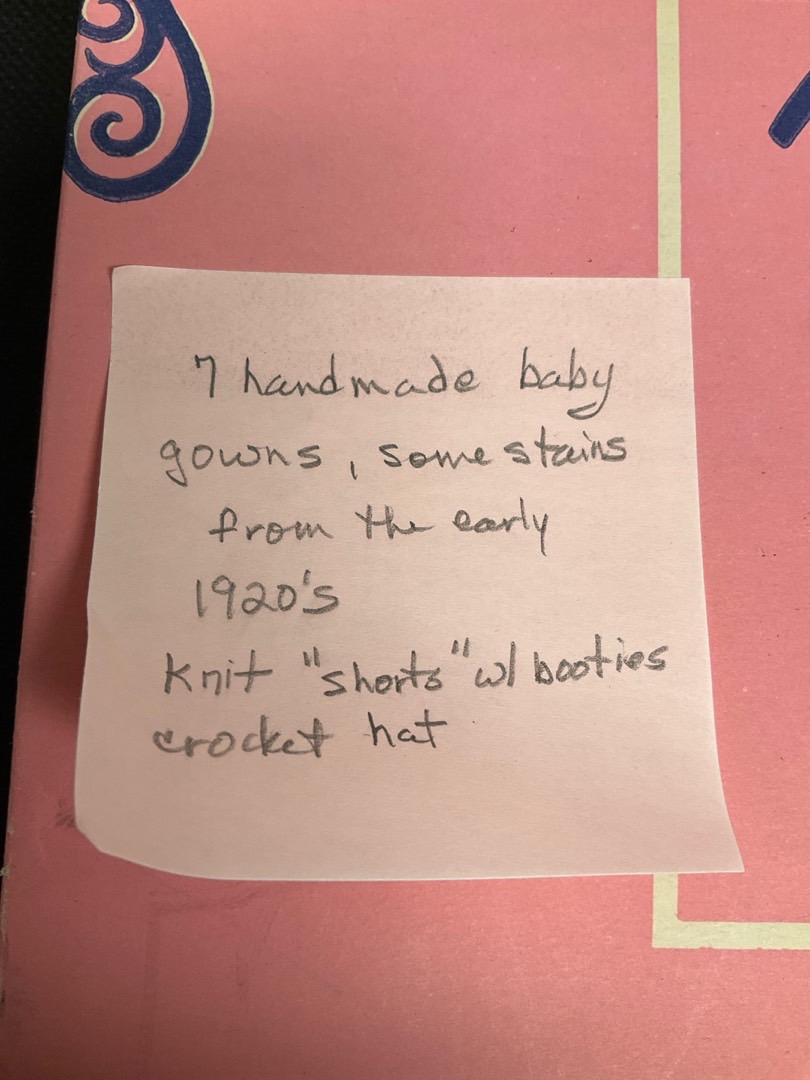 7 handmade baby
gowns, some stains
from the early
1920's
Knit "shorts" w/ booties
crocket hat